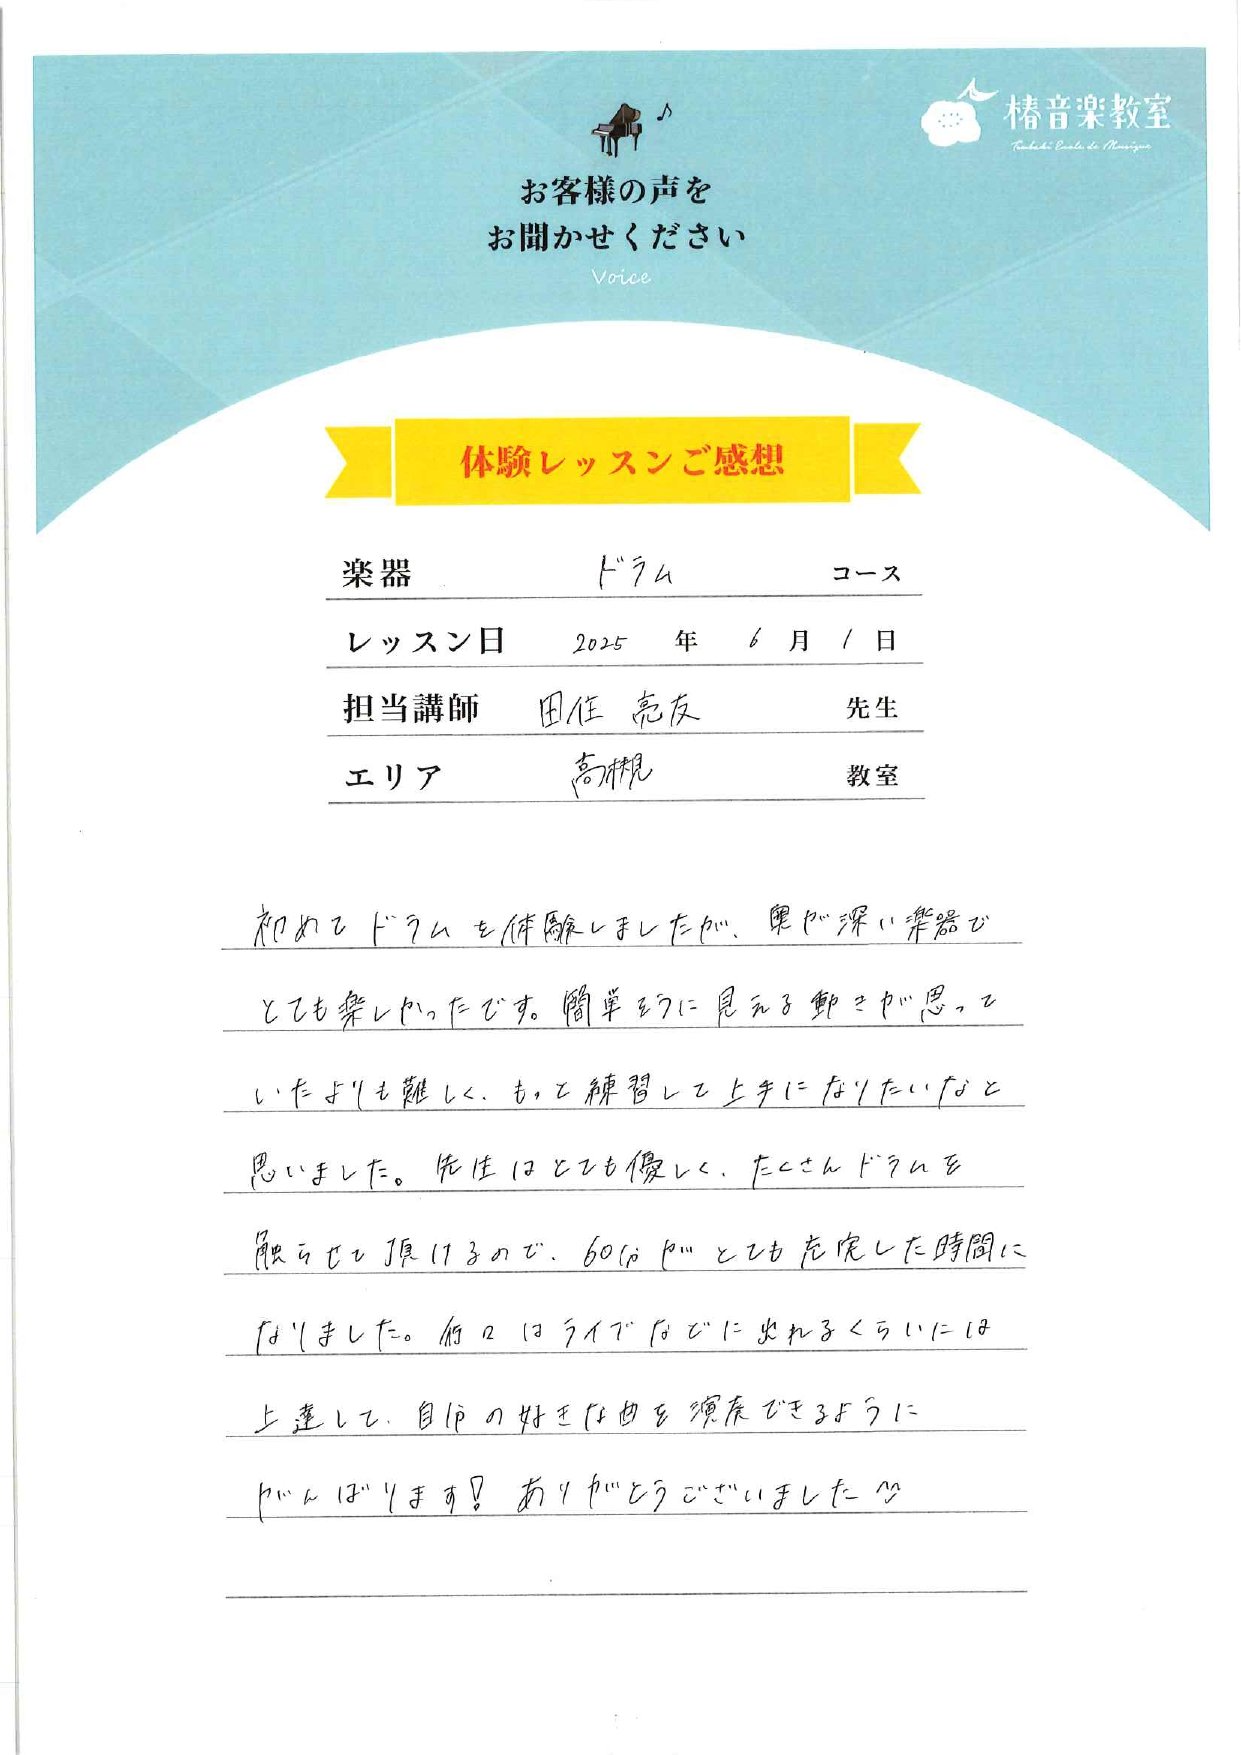 椿音楽教室
Tsubaki Ecole de Musique
お客様の声を
お聞かせください
Voice
体験レッスンご感想
楽器 ドラム コース
レッスン日 2025 年 6 月 1 日
担当講師 田住 亮友 先生
エリア 高槻 教室
初めてドラムを体験しましたが、奥が深い楽器で
とても楽しかったです。簡単そうに見える動きが思って
いたよりも難しく、もっと練習して上手になりたいなと
思いました。先生はとても優しく、たくさんドラムを
触らせて頂けるので、60分がとても充実した時間に
なりました。行々はライブなどに出れるくらいには
上達して、自分の好きな曲を演奏できるように
がんばります! ありがとうございました